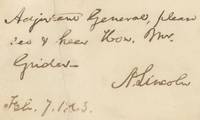 Adjutant General, please
see & hear Hon. Mr.
Grider.
A. Lincoln
Feb. 7. 1863.